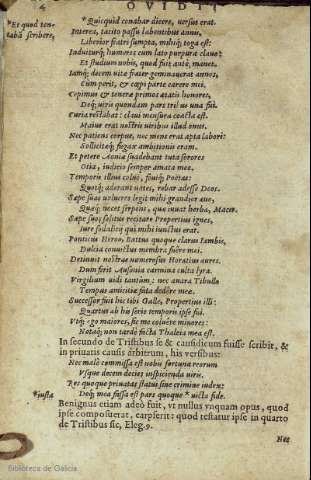 4 OVIDII
* Et quod ten-
tabā scribere,
*Quicquid conabar dicere, versus erat.
Interea, tacito passu labentibus annis,
Liberior fratri sumpta, mihiq; toga est:
Induiturq; humeris cum lato purpura clauo:
Et studium nobis, quod fuit antè, manet.
Iamq; decem vita frater geminauerat annos,
Cum perit, & cœpi parte carere mei.
Cepimus & teneræ primos ætatis honores,
Deq; viris quondam pars tribus una fui.
Curia restabat: claui mensura coacta est.
Maius erat nostris viribus illud onus.
Nec patiens corpus, nec mens erat apta labori:
Sollicitæq; fugax ambitionis eram.
Et petere Aoniæ suadebant tuta sorores
Otia, iudicio semper amata meo.
Temporis illius colui, fouiq; Poëtas:
Quotq; aderant vates, rebar adesse Deos.
Sæpe suas volucres legit mihi grandior æuo,
Quæq; necet serpens, quæ iuuat herba, Macer.
Sæpe suos solitus recitare Propertius ignes,
Iure sodalitij qui mihi iunctus erat.
Ponticus Heroo, Battus quoque clarus Iambis,
Dulcia conuictus membra fuêre mei.
Detinuit nostras numerosus Horatius aures.
Dum ferit Ausonia carmina culta lyra.
Virgilium vidi tantùm; nec amara Tibullo
Tempus amicitiæ fata dedêre meæ.
Successor fuit hic tibi Galle, Propertius illi:
Quartus ab his serie temporis ipse fui.
Vtq; ego maiores, sic me coluêre minores:
Notaq; non tardè facta Thaleia mea est.
In secundo de Tristibus se & causidicum fuisse scribit, &
in priuatis causis arbitrum, his versibus:
Nec malè commissa est nobis fortuna reorum
Vsque decem decies inspicienda viris.
Res quoque priuatas statui sine crimine iudex:
*iusta Deq; mea fassa est pars quoque * victa fide.
Benignus etiam adeò fuit, vt nullus vnquam opus, quod
ipse composuerat, carpserit: quod testatur ipse in quarto
de Tristibus sic, Eleg. 9.
Nec
Biblioteca de Galicia